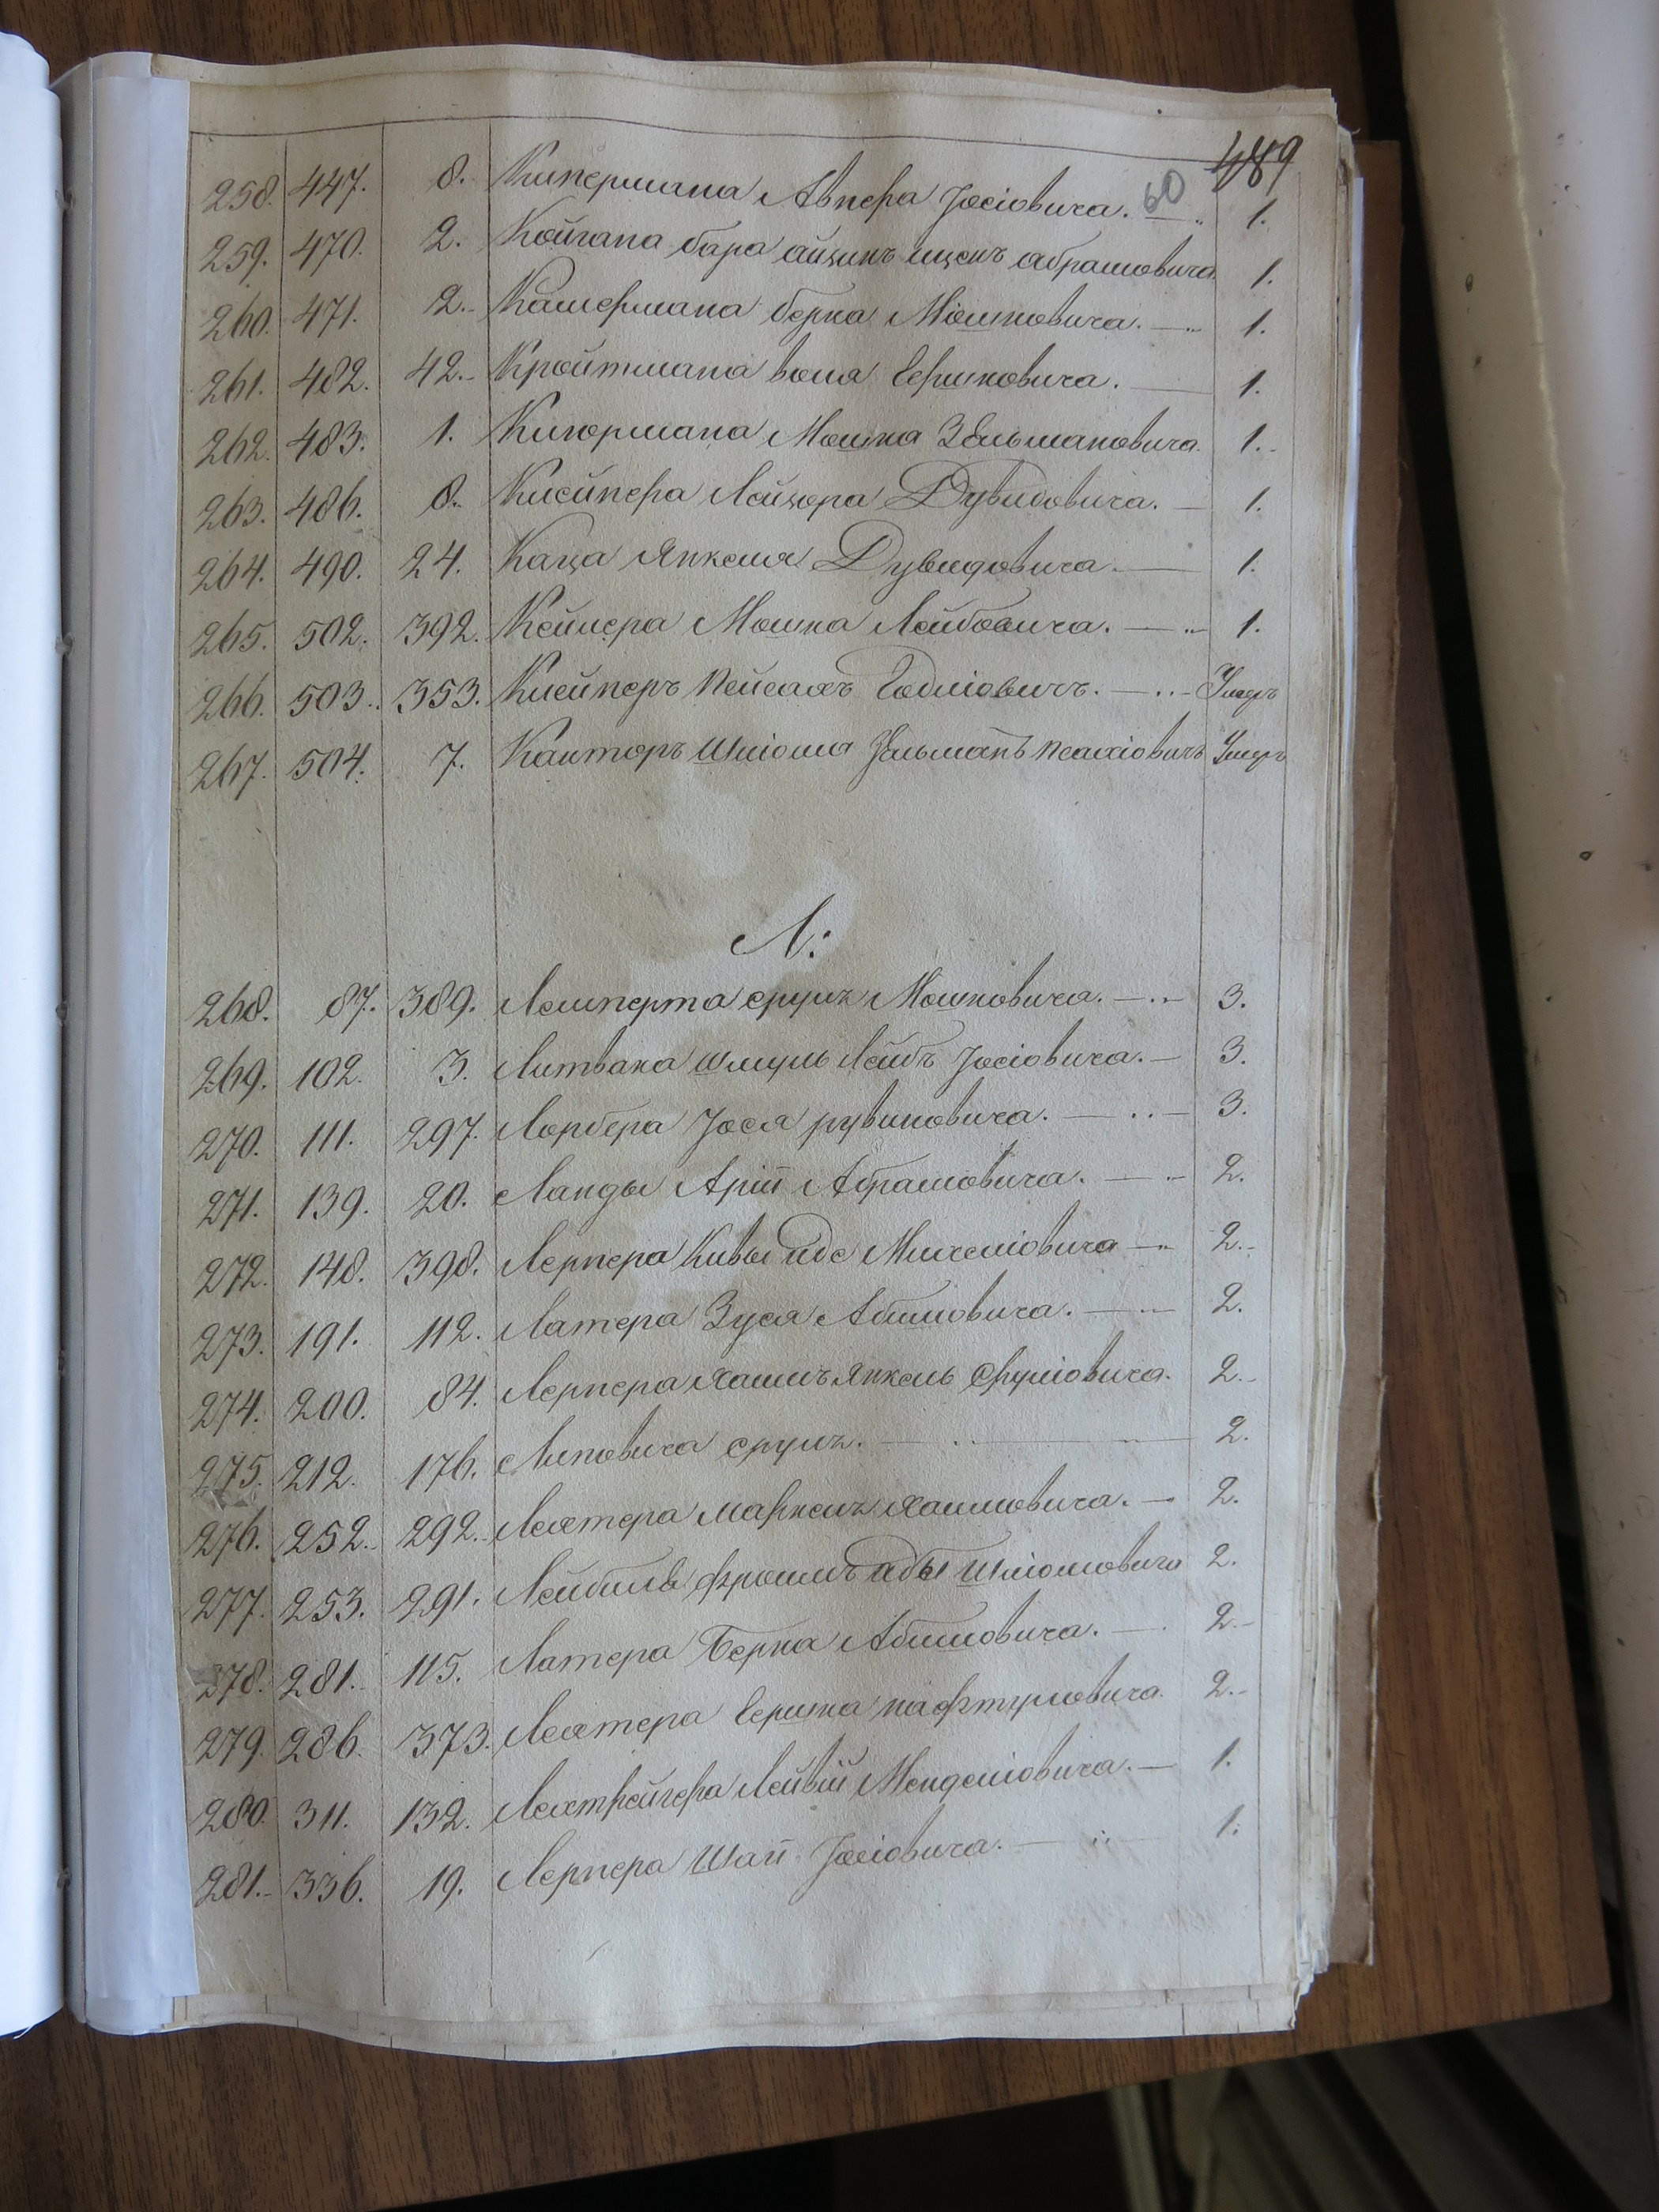 489
60
258. 447. 8. Кипермана Авнера Іосіовича. 1.
259. 470. 2. Койгана бара айзикъ ицекъ абрамовича 1.
260. 471. 2. Камермана берка Мошковича. 1.
261. 482. 42. Кройтмана вола Гершковича. 1.
262. 483. 1. Кигормана Мошка Зельмановича 1.
263. 486. 8. Клейнера Лейзора Дувидовича. 1.
264. 490. 24. Каца Янкеля Дувидовича. 1.
265. 502. 392. Кейцера Мошка Лейбовича. 1.
266. 503. 353. Клейнеръ Пейсахъ Годліовичъ. Умеръ
267. 504. 7. Канторъ Шліома Зельманъ Псахіовичъ Умеръ
Л:
268. 87. 389. Лемперта сруль Мошковича. 3.
269. 102. 3. Литвака шмуль Лейбъ Іосіовича. 3.
270. 111. 297. Лорбера Іося рувиновича. 3.
271. 139. 20. Ланды Арій Абрамовича. 2.
272. 148. 398. Лернера Кивы иде Михеліовича 2.
273. 191. 112. Латера Зуся Абимовича. 2.
274. 200. 84. Лернера Хаимъ Янкель Сруліовича. 2.
275. 212. 176. Липовича сруль. 2.
276. 252. 292. Лехтера маркель хаимовича. 2.
277. 253. 291. Лейбиль фроимъ Шліомовича 2.
278. 281. 115. Латера Берка Абимовича. 2.
279. 286. 373. Лехтера Гершка нафтуловича. 2.
280. 311. 132. Лехтрейгера Лейвій Менделіовича. 1.
281. 336. 19. Лернера Шаи Іосіовича. 1.